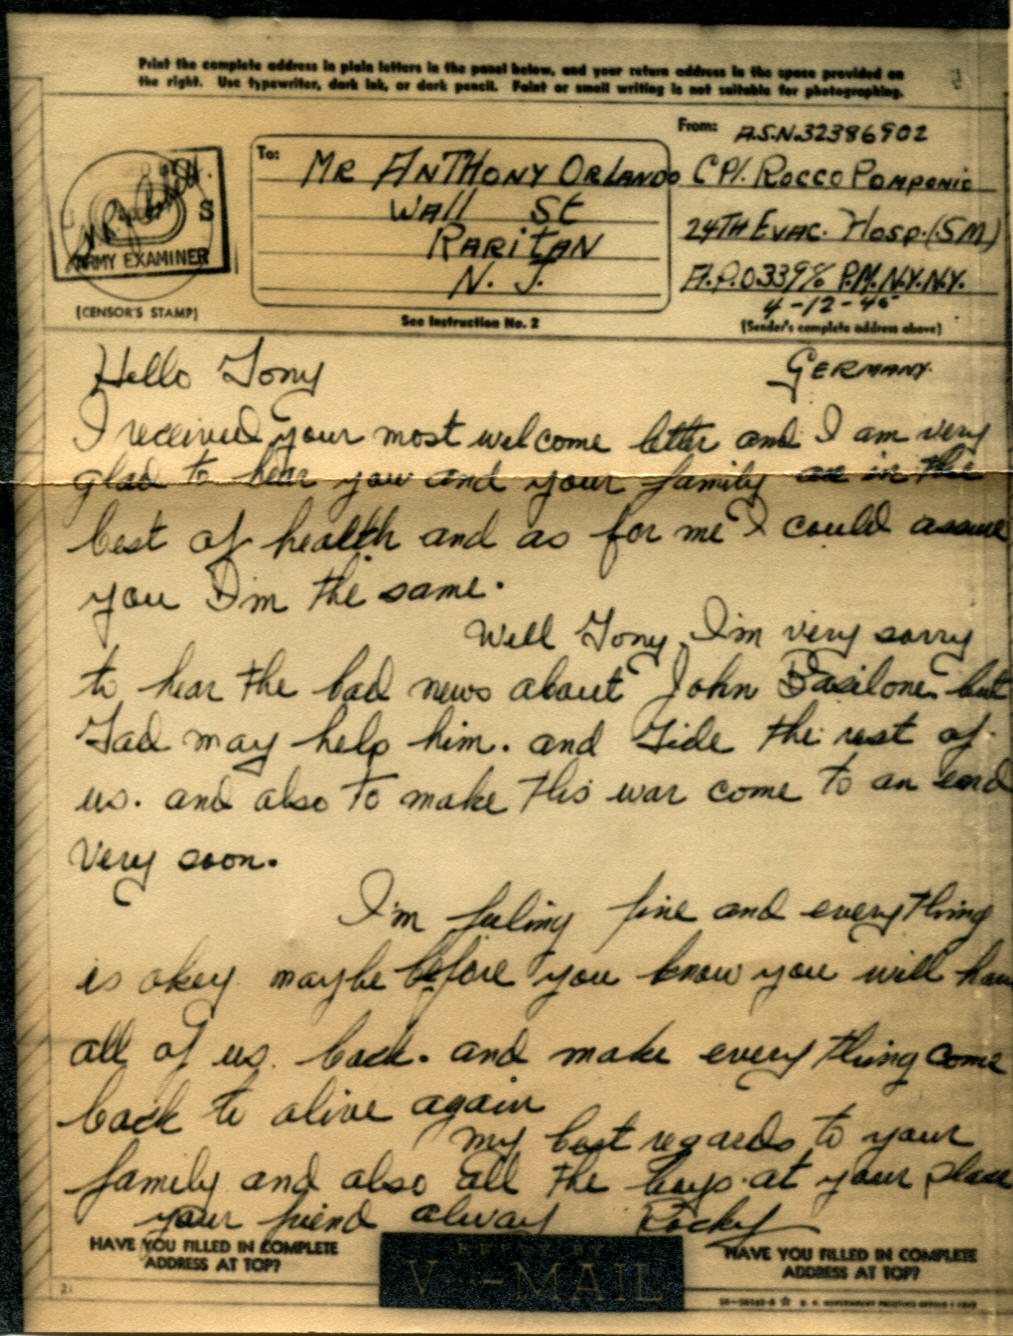 Print the complete address in plain letters in the panel below, and your return address in the space provided on
the right. Use typewriter, dark ink, or dark pencil. Faint or small writing is not suitable for photographing.
ARMY EXAMINER
(CENSOR'S STAMP)
To:
MR ANTHONY ORLANDO
Wall St
RARITAN
N. J.
See Instruction No. 2
From: A.S.N.32386902
CPl. ROCCO POMPONIO
24TH EVAC. Hosp.(SM)
A.P.O.339 % P.M.N.Y.N.Y.
4-12-45
(Sender's complete address above)
Hello Tony
GERMANY.
I received your most welcome letter and I am very
glad to hear you and your family are in the
best of health and as for me I could assure
you I'm the same.
Well Tony, I'm very sorry
to hear the bad news about John Basilone but
God may help him. and Gide the rest of
us. and also to make this war come to an end
very soon.
I'm feeling fine and everything
is okey maybe before you know you will have
all of us. back. and make every thing come
back to alive again
my best regards to your
family and also all the boys at your place
your friend alway Rocky
HAVE YOU FILLED IN COMPLETE
ADDRESS AT TOP?
REPLY BY
V···-MAIL
HAVE YOU FILLED IN COMPLETE
ADDRESS AT TOP?